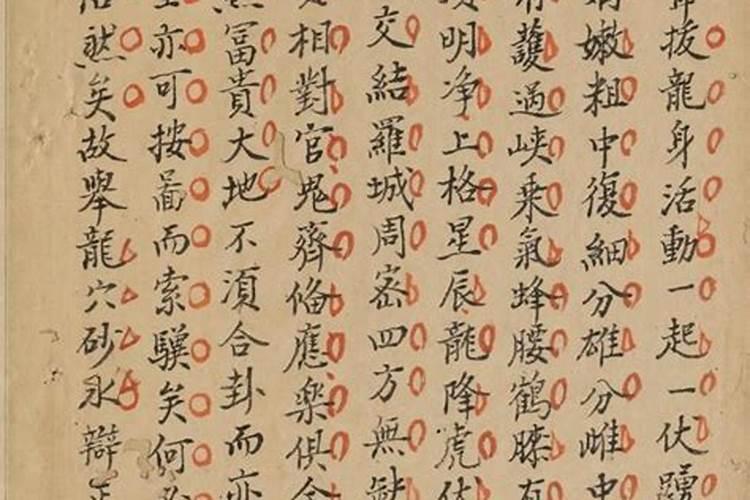 拔龍身活動一起一伏
嫩粗中復細分雄分雌中
護過峽乘氣蜂腰鶴膝有
明净上格星辰龍降虎伏
交結羅城周密四方無缺
相對官鬼齊俻應樂俱全
富貴大地不湏合卦而亦
亦可按啚而索驥矣何必
然矣故舉龍穴砂水辯